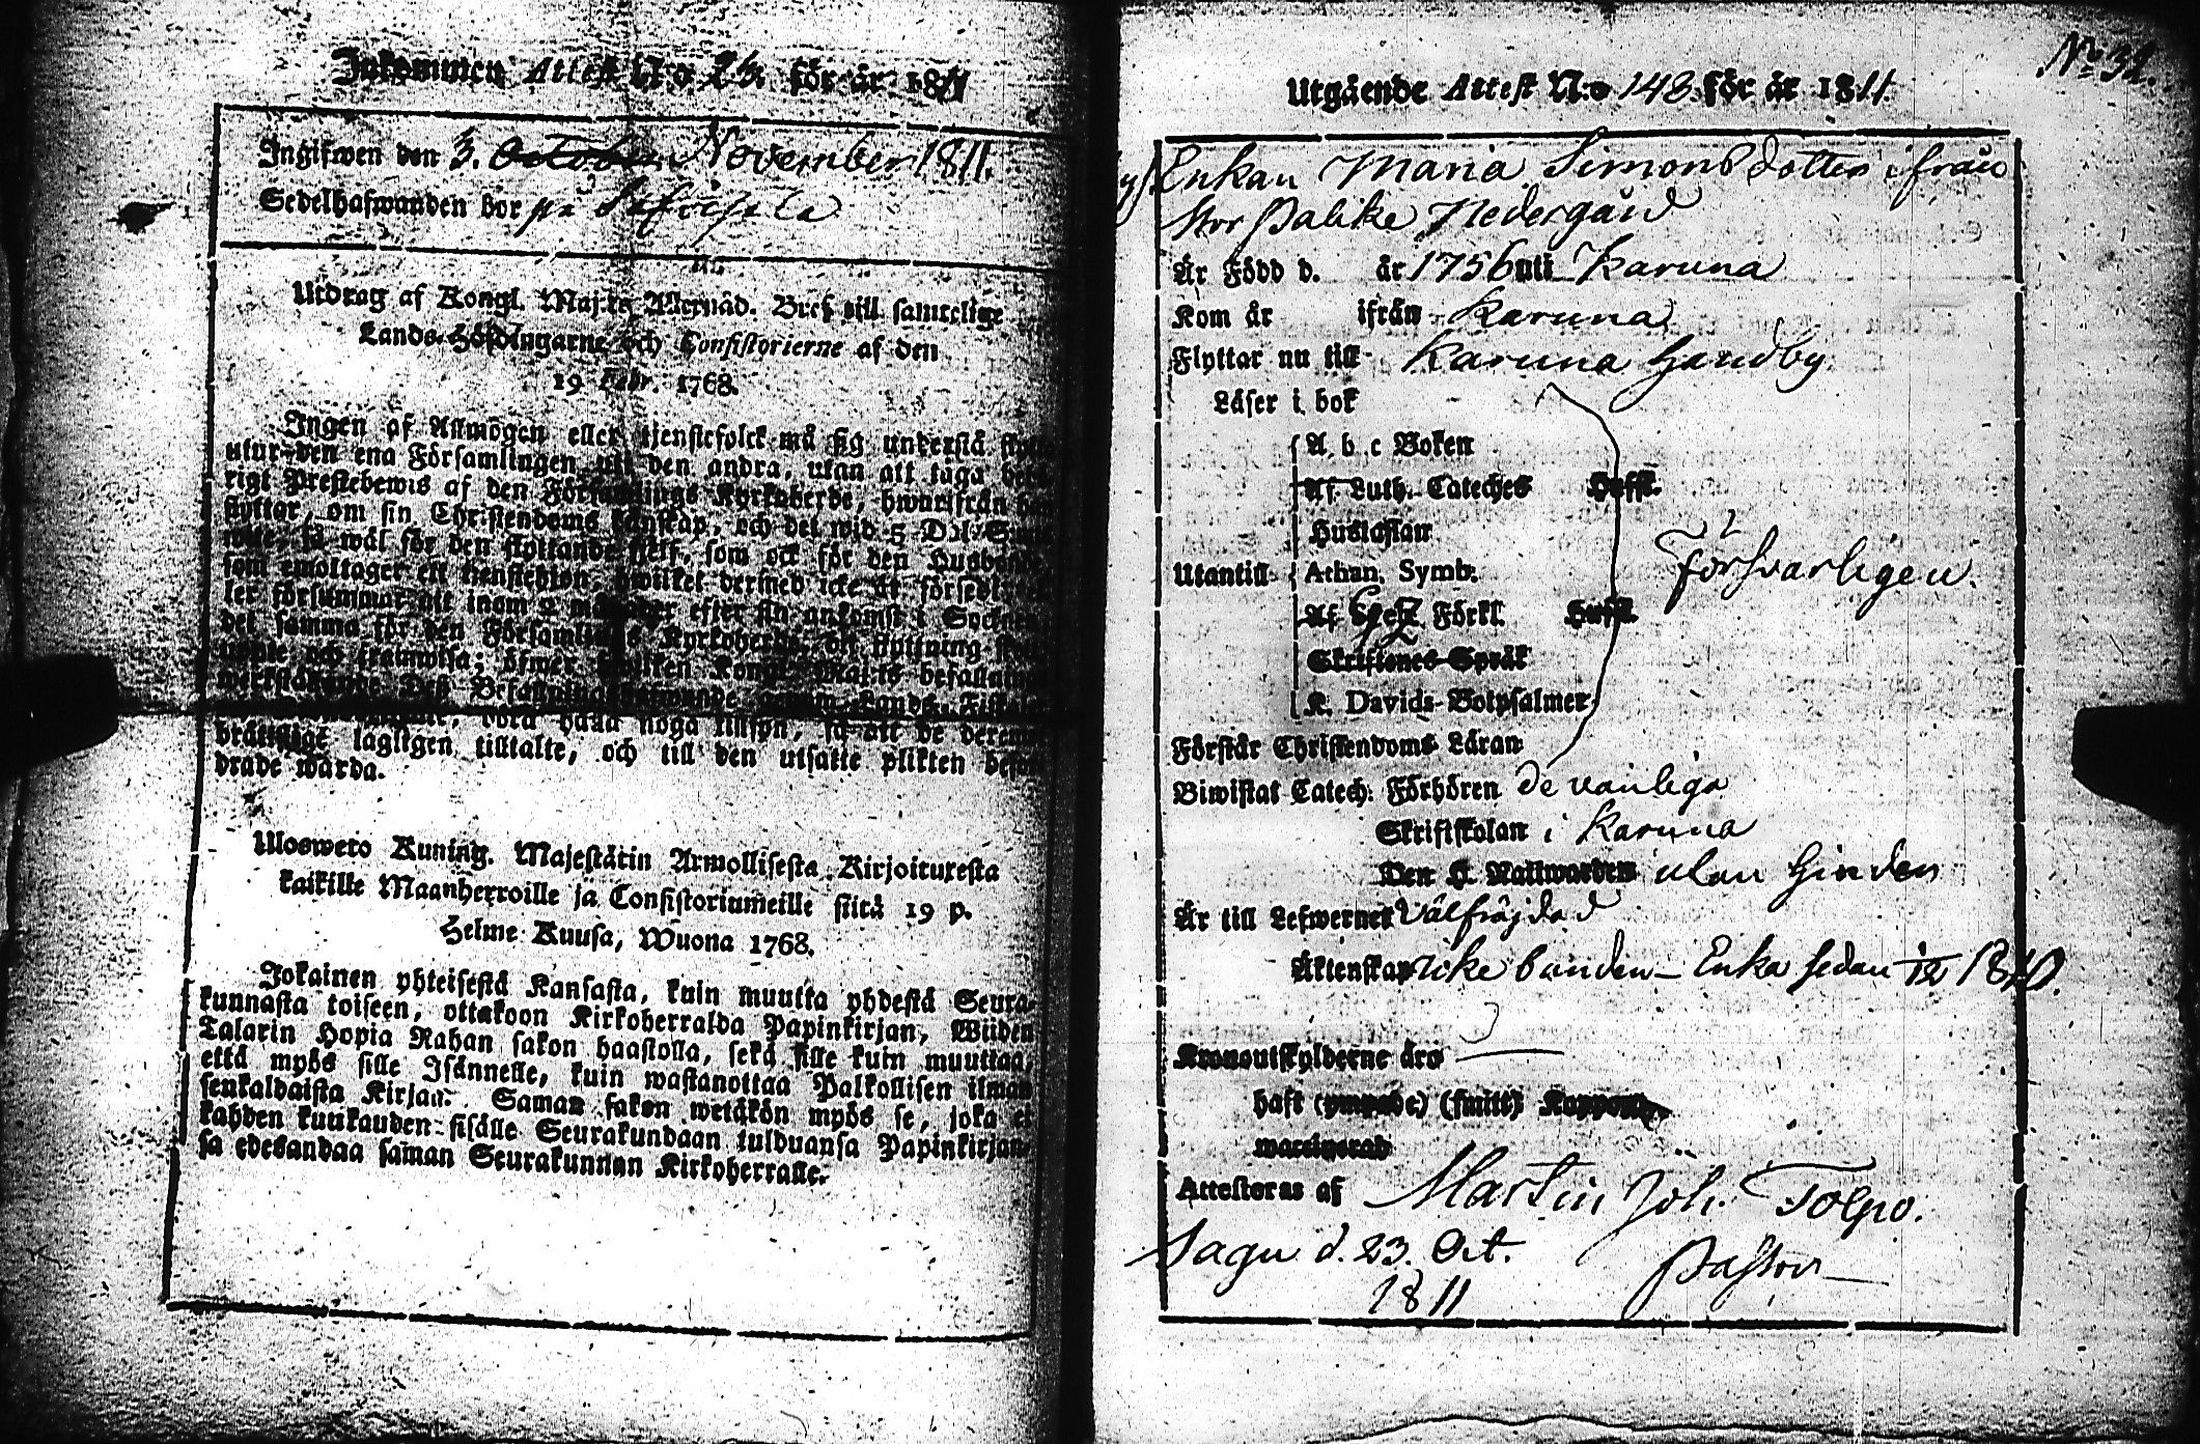 Inkommen Attest N:o 26. för år 1811
Ingifwen den 3. October November 1811.
Sedelhafwanden bor på
Utdrag af Kongl. Maj:ts Allernåd. Bref till samtelige
Lands-Höfdingarne och Consistorierne af den
19 Febr. 1768.
Ingen af Allmogen eller tjenstefolck må sig understå
utur den ena Församlingen uti den andra, utan att taga
rigt Prestebewis af den Församlings Kyrkoherde, hwarifrån
flyttar, om sin Christendoms kunskap, och det wid 5 Dal.
wite, så wäl för den flyttande sjelf, som ock för den
som emottager ett tjenstehjon, hwilket dermed icke är
ler försummar att inom 2 månader efter sin ankomst i
det samma för den Församlings Kyrkoherde, dit flyttning
uppte och framwisa; öfwer hwilken Kongl. Maj:ts befallning
Dess Befallningshafwande Lands-
böra hålla noga tillsyn, så att de
lagligen tilltalte, och till den utsatte plikten
drade warda.
Uloswето Kuning. Majestätin Armollisesta Kirjoituxesta
kaikille Maanherroille ja Consistoriumeille siitä 19 p.
Helme Kuusa, Wuona 1768.
Jokainen yhteisestä Kansasta, kuin muutta yhdestä Seura-
kunnasta toiseen, ottakoon Kirkoherralda Papinkirjan, Wiiden
Talarin Hopia Rahan sakon haastolla, sekä sille kuin muuttaa,
että myös sille Isännelle, kuin wastanottaa Palkollisen ilman
senkaldaista Kirjaa. Saman sakon wetäkön myös se, joka ei
kahden kuukauden sisälle Seurakundaan tulduansa Papinkirjan-
sa edesandaa saman Seurakunnan Kirkoherralle.
No 31.
Utgående Attest N:o 148 för år 1811.
Enkan Maria Simonsdotter ifrån
Stor Palike Nedergård
Är Född d. år 1756 uti Karuna
Kom år ifrån Karuna
Flyttar nu till Karuna Sandby
Läser i bok
A. b. c Boken
Af Luth. Cateches Huffst.
Hustaflan
Försvarligen.
Utantill Athan. Symb.
Af Förkl. Huffst.
Skriftenes Språk
K. Davids Botpsalmer
Förstår Christendoms Läran
Biwistat Catech. Förhören de vanliga
Skriftskolan i Karuna
Den H. Nattwarden utan hinder
Är till Lefwernet Välfräjdad
Äktenskap icke bunden – Enka sedan 1810.
Kronoutskylderne äro
haft (ympade) (smitt) Koppor
waccinerad
Attesteras af Martin Joh. Tolpo.
Sagu d. 23. Oct. Pastor
1811